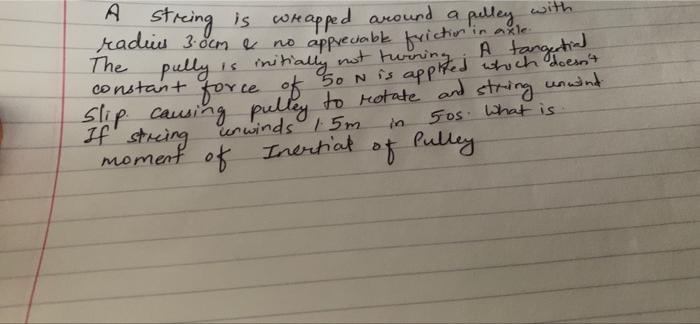 A string is wrapped around a pulley with
radius 3.0cm & no appreciable friction in axle.
The pully is initially not turning. A tangential
constant force of 50 N is applied which doesn't
slip causing pulley to rotate and string unwind.
If string unwinds 1.5m in 5.0s. What is
moment of Inertial of Pulley